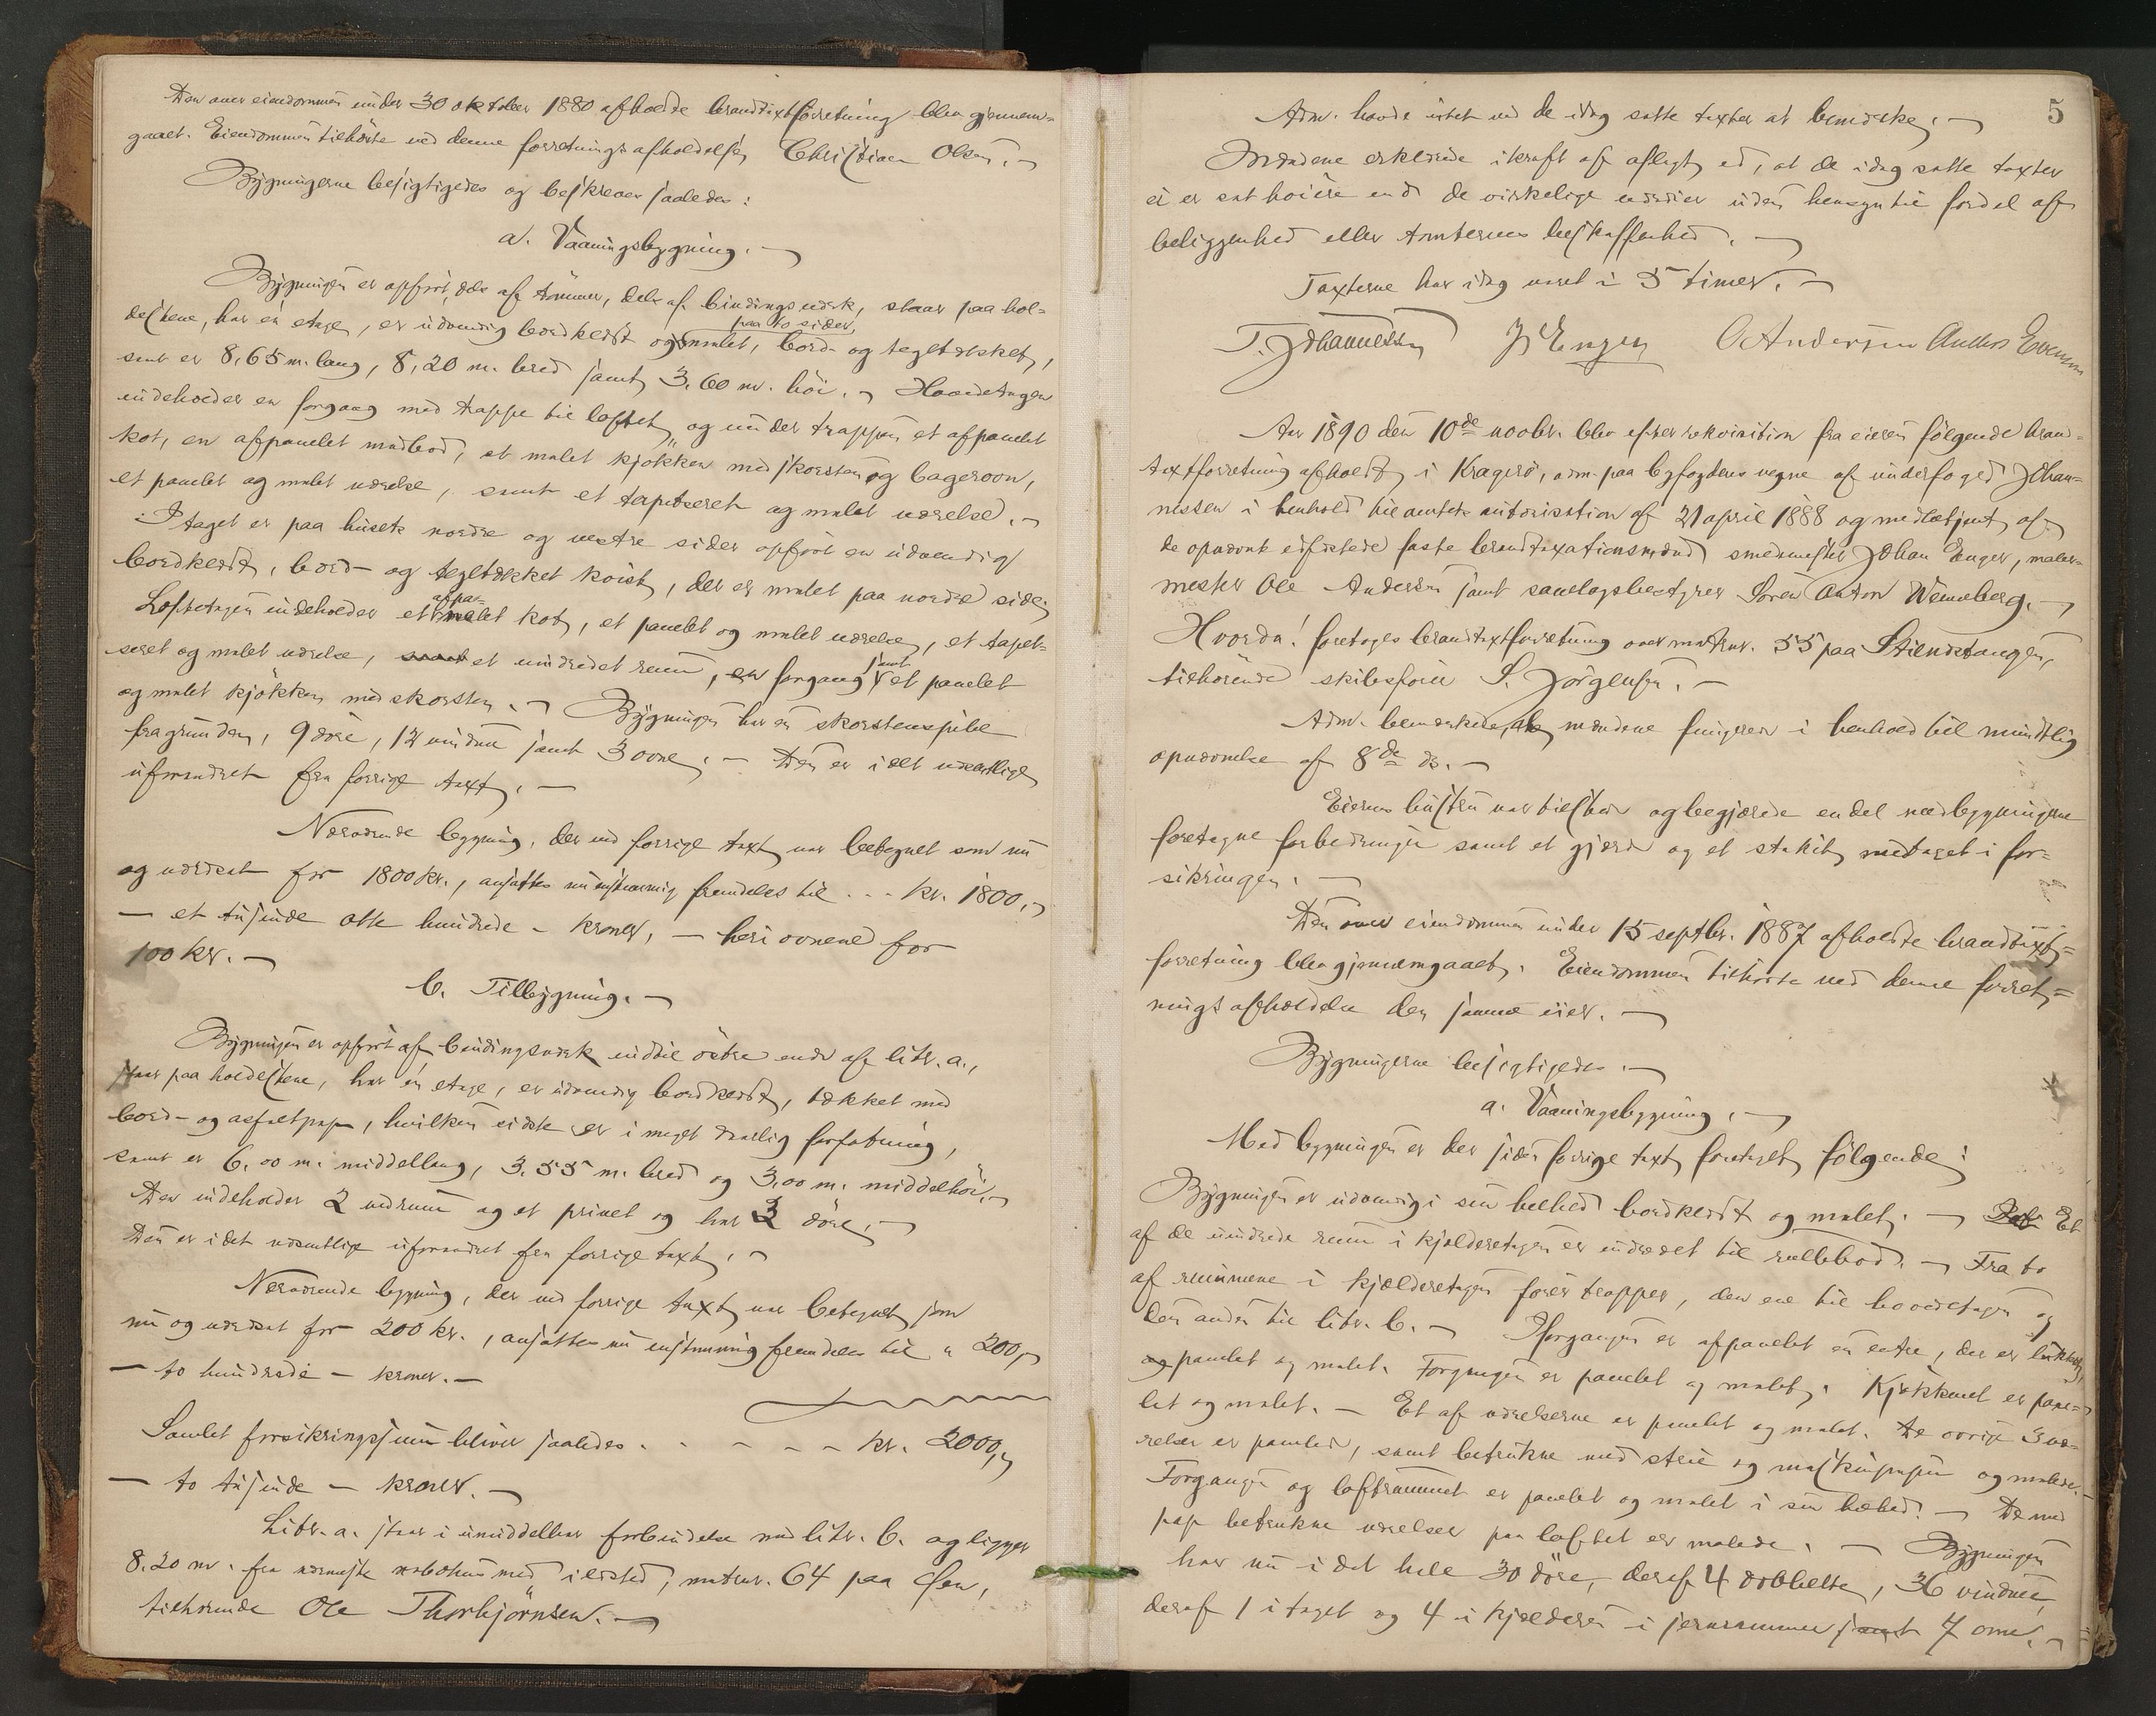 Den over eiendommen under 30 oktober 1880 afholdte brandtaxtforretning blev gjennem-
gaaet. Eiendommen tilhørte ved denne forretnings afholdelse Christian Olsen. -
Bygningerne besigtigedes og beskreves saaledes:
a. Vaaningsbygning. -
Bygningen er opført, dels af tømmer, dels af bindingsverk, staar paa hol-
destene, har én etage, er udvendig bordklædt og malet, bord- og tegltækket,
paa to sider,
samt er 8,65 m. lang, 8,20 m. bred samt 3,60 m. høi. - Hovedetagen
indeholder en forgang med trappe til loftet, og under trappen et afpanelet
kot, en afpanelet madbod, et malet kjøkken med skorsten og bagerovn,
et panelet og malet værelse, samt et tapetseret og malet værelse. -
I taget er paa husets nordre og vestre sider opført en udvendig
bordklædt, bord- og tegltækket kvist, der er malet paa nordre side.
Loftetagen indeholder et afpanelet kot, et panelet og malet værelse, et tapet-
seret og malet værelse, samt et uindredet rum, en forgang samt et panelet
og malet kjøkken med skorsten. - Bygningen har én skorstenspibe
fra grunden, 9 døre, 12 vinduer samt 3 ovne. - Den er i det væsentlige
uforandret fra forrige taxt. -
Nærværende bygning, der ved forrige taxt var betegnet som nu
og værdsat for 1800 kr., ansattes nu enstemmig fremdeles til . . . kr. 1800,-
- et tusinde otte hundrede - kroner, - heri ovnene for
100 kr. -
b. Tilbygning. -
Bygningen er opført af bindingsverk indtil østre ende af litr. a.,
staar paa holdestene, har én etage, er udvendig bordklædt, tækket med
bord- og asfaltpap, hvilken sidste er i meget daarlig forfatning,
samt er 6.00 m. middellang, 3.55 m. bred og 3,00 m. middelhøi. -
Den indeholder 2 vedrum og et privet og har 3 døre. -
Den er i det væsentlige uforandret fra forrige taxt. -
Nærværende bygning, der ved forrige taxt var betegnet som
nu og værdsat for 200 kr., ansattes nu enstemmig fremdeles til " 200,-
- to hundrede - kroner. -
Samlet forsikringssum bliver saaledes . . - - - - kr. 2000,-
- to tusinde - kroner. -
Litr. a. staar i umiddelbar forbindelse med litr. b. og ligger
8.20 m. fra nærmeste nabohus med ildsted, matrnr. 64 paa Øen,
tilhørende Ole Thorbjørnsen. -
5
Adm. havde intet ved de idag satte taxter at bemærke. -
Mændene erklærede i kraft af aflagt ed, at de idag satte taxter
ei er sat høiere end de virkelige værdier uden hensyn til fordel af
beliggenhed eller tomternes beskaffenhed. -
Taxterne har idag varet i 5 timer. -
T. Johannessen J Enger O Andersen Anders Evensen
Aar 1890 den 10de novbr. blev efter rekvisition fra eieren følgende brand-
taxtforretning afholdt i Kragerø, adm. paa byfogdens vegne af underfoged Johan-
nessen i henhold til amtets autorisation af 21 april 1888 og medbetjent af
de opnævnte edfæstede faste brandtaxationsmænd smedmester Johan Enger, maler-
mester Ole Andersen samt samlagsbestyrer Søren Anton Wenneberg. -
Hvorda! foretoges brandtaxtforretning over matrnr. 55 paa Stenstangen,
tilhørende skibsfører S. Jørgensen. -
Adm. bemærkede, at mændene fungerer i henhold til mundtlig
opnævnelse af 8de ds. -
Eierens hustru var tilstede og begjærede endel ved bygningerne
foretagne forbedringer samt et gjærde og et stakit medtaget i for-
sikringen. -
Den over eiendommen under 15 septbr. 1887 afholdte brandtaxt-
forretning blev gjennemgaaet. Eiendommen tilhørte ved denne forret-
nings afholdelse den samme eier. -
Bygningerne besigtigedes. -
a. Vaaningsbygning. -
Med bygningen er der siden forrige taxt foretaget følgende:
Bygningen er udvendig i sin helhed bordklædt og malet. - Et
af de uindrede rum i kjelderetagen er indredet til rullebod. - Fra to
af rummene i kjælderetagen fører trapper, den ene til hovedetagen og
den anden til litr. b. - I forgangen er afpanelet en entre, der er lukket,
og panelet og malet. Forgangen er panelet og malet. Kjøkkenet er pane-
let og malet. - Et af værelserne er panelet og malet. De øvrige 3 væ-
relser er panelede, samt betrukne med strie og maskinpapir og malede. -
Forgangen og loftrummet er panelet og malet i sin helhed. - De med
pap betrukne værelser paa loftet er malede. - Bygningen
har nu i det hele 30 døre, deraf 4 dobbelte, 36 vinduer,
deraf 1 i taget og 4 i kjælderen i jernrammer samt 7 ovne. -